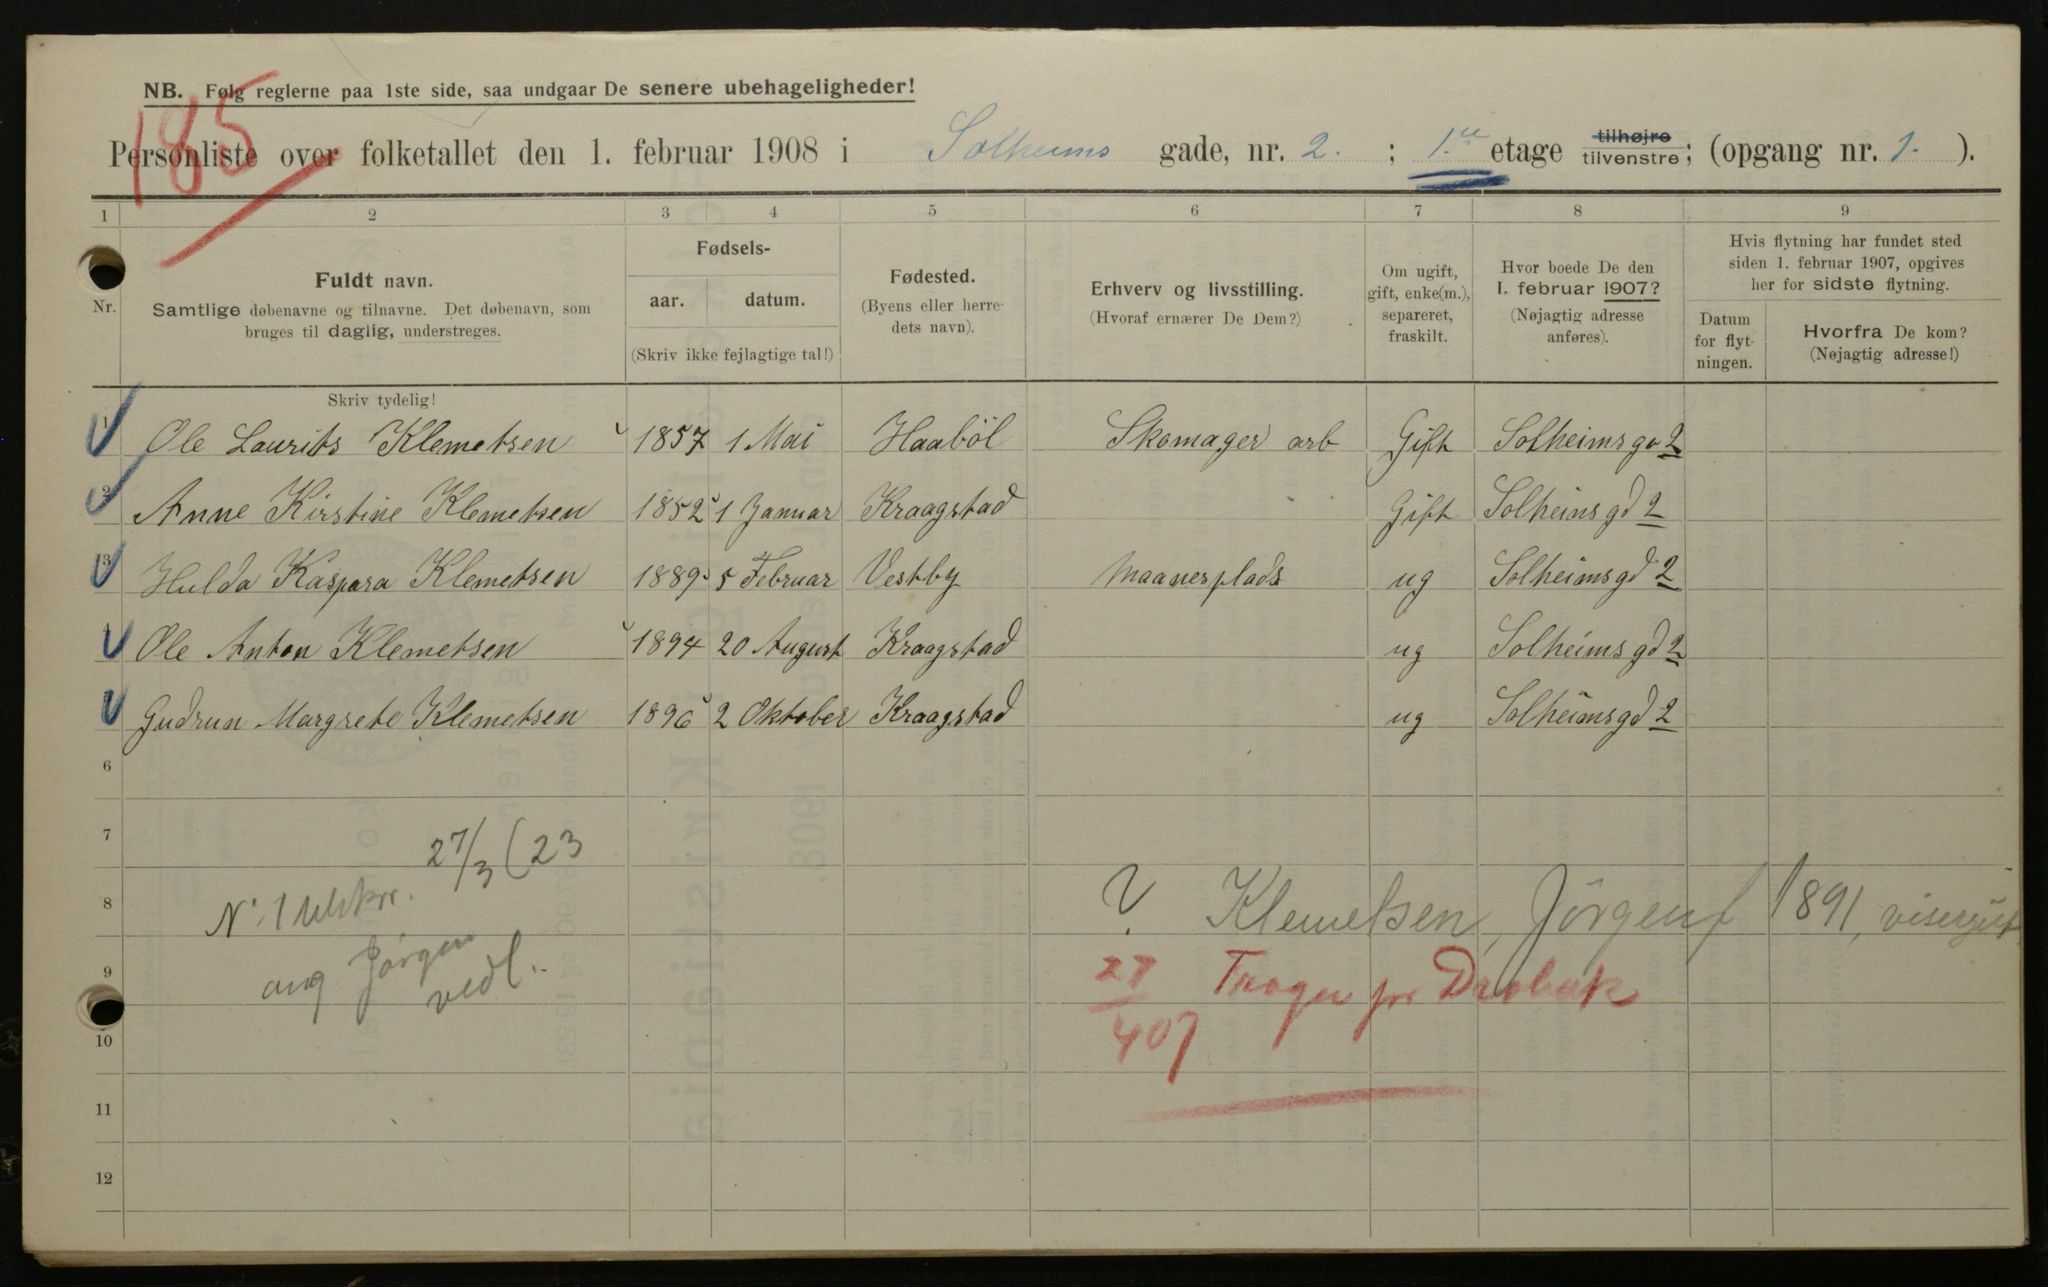 NB. Følg reglerne paa 1ste side, saa undgaar De senere ubehageligheder!
185
Personliste over folketallet den 1. februar 1908 i Solheims gade, nr. 2. ; 1.ste etage tilhøjre tilvenstre; (opgang nr. 1. ).
1 2 3 4 5 6 7 8 9
Nr.
Fuldt navn.
Samtlige døbenavne og tilnavne. Det døbenavn, som
bruges til daglig, understreges.
Fødsels-
aar. datum.
(Skriv ikke fejlagtige tal!)
Fødested.
(Byens eller herre-
dets navn).
Erhverv og livsstilling.
(Hvoraf ernærer De Dem?)
Om ugift,
gift, enke(m.),
separeret,
fraskilt.
Hvor boede De den
1. februar 1907?
(Nøjagtig adresse
anføres).
Hvis flytning har fundet sted
siden 1. februar 1907, opgives
her for sidste flytning.
Datum
for flyt-
ningen.
Hvorfra De kom?
(Nøjagtig adresse!)
Skriv tydelig!
1 Ole Laurits Klemetsen 1857 1 Mai Haaböl Skomager arb Gift Solheimsga 2
2 Anne Kirstine Klemetsen 1852 1 Januar Kraagstad Gift Solheimsgd 2
3 Hulda Kaspara Klemetsen 1889 5 Februar Vestby Maanesplads ug Solheimsgd 2
4 Ole Anton Klemetsen 1894 20 August Kraagstad ug Solheimsgd 2
Gudrun Margrete Klemetsen 1896 2 Oktober Kraagstad ug Solheimsgd 2
6
7
27/3 (23
8
N. 1
? Klemetsen, Jörgen 1891,
9
ang Jørgen
vedl.
27
407
10
11
12